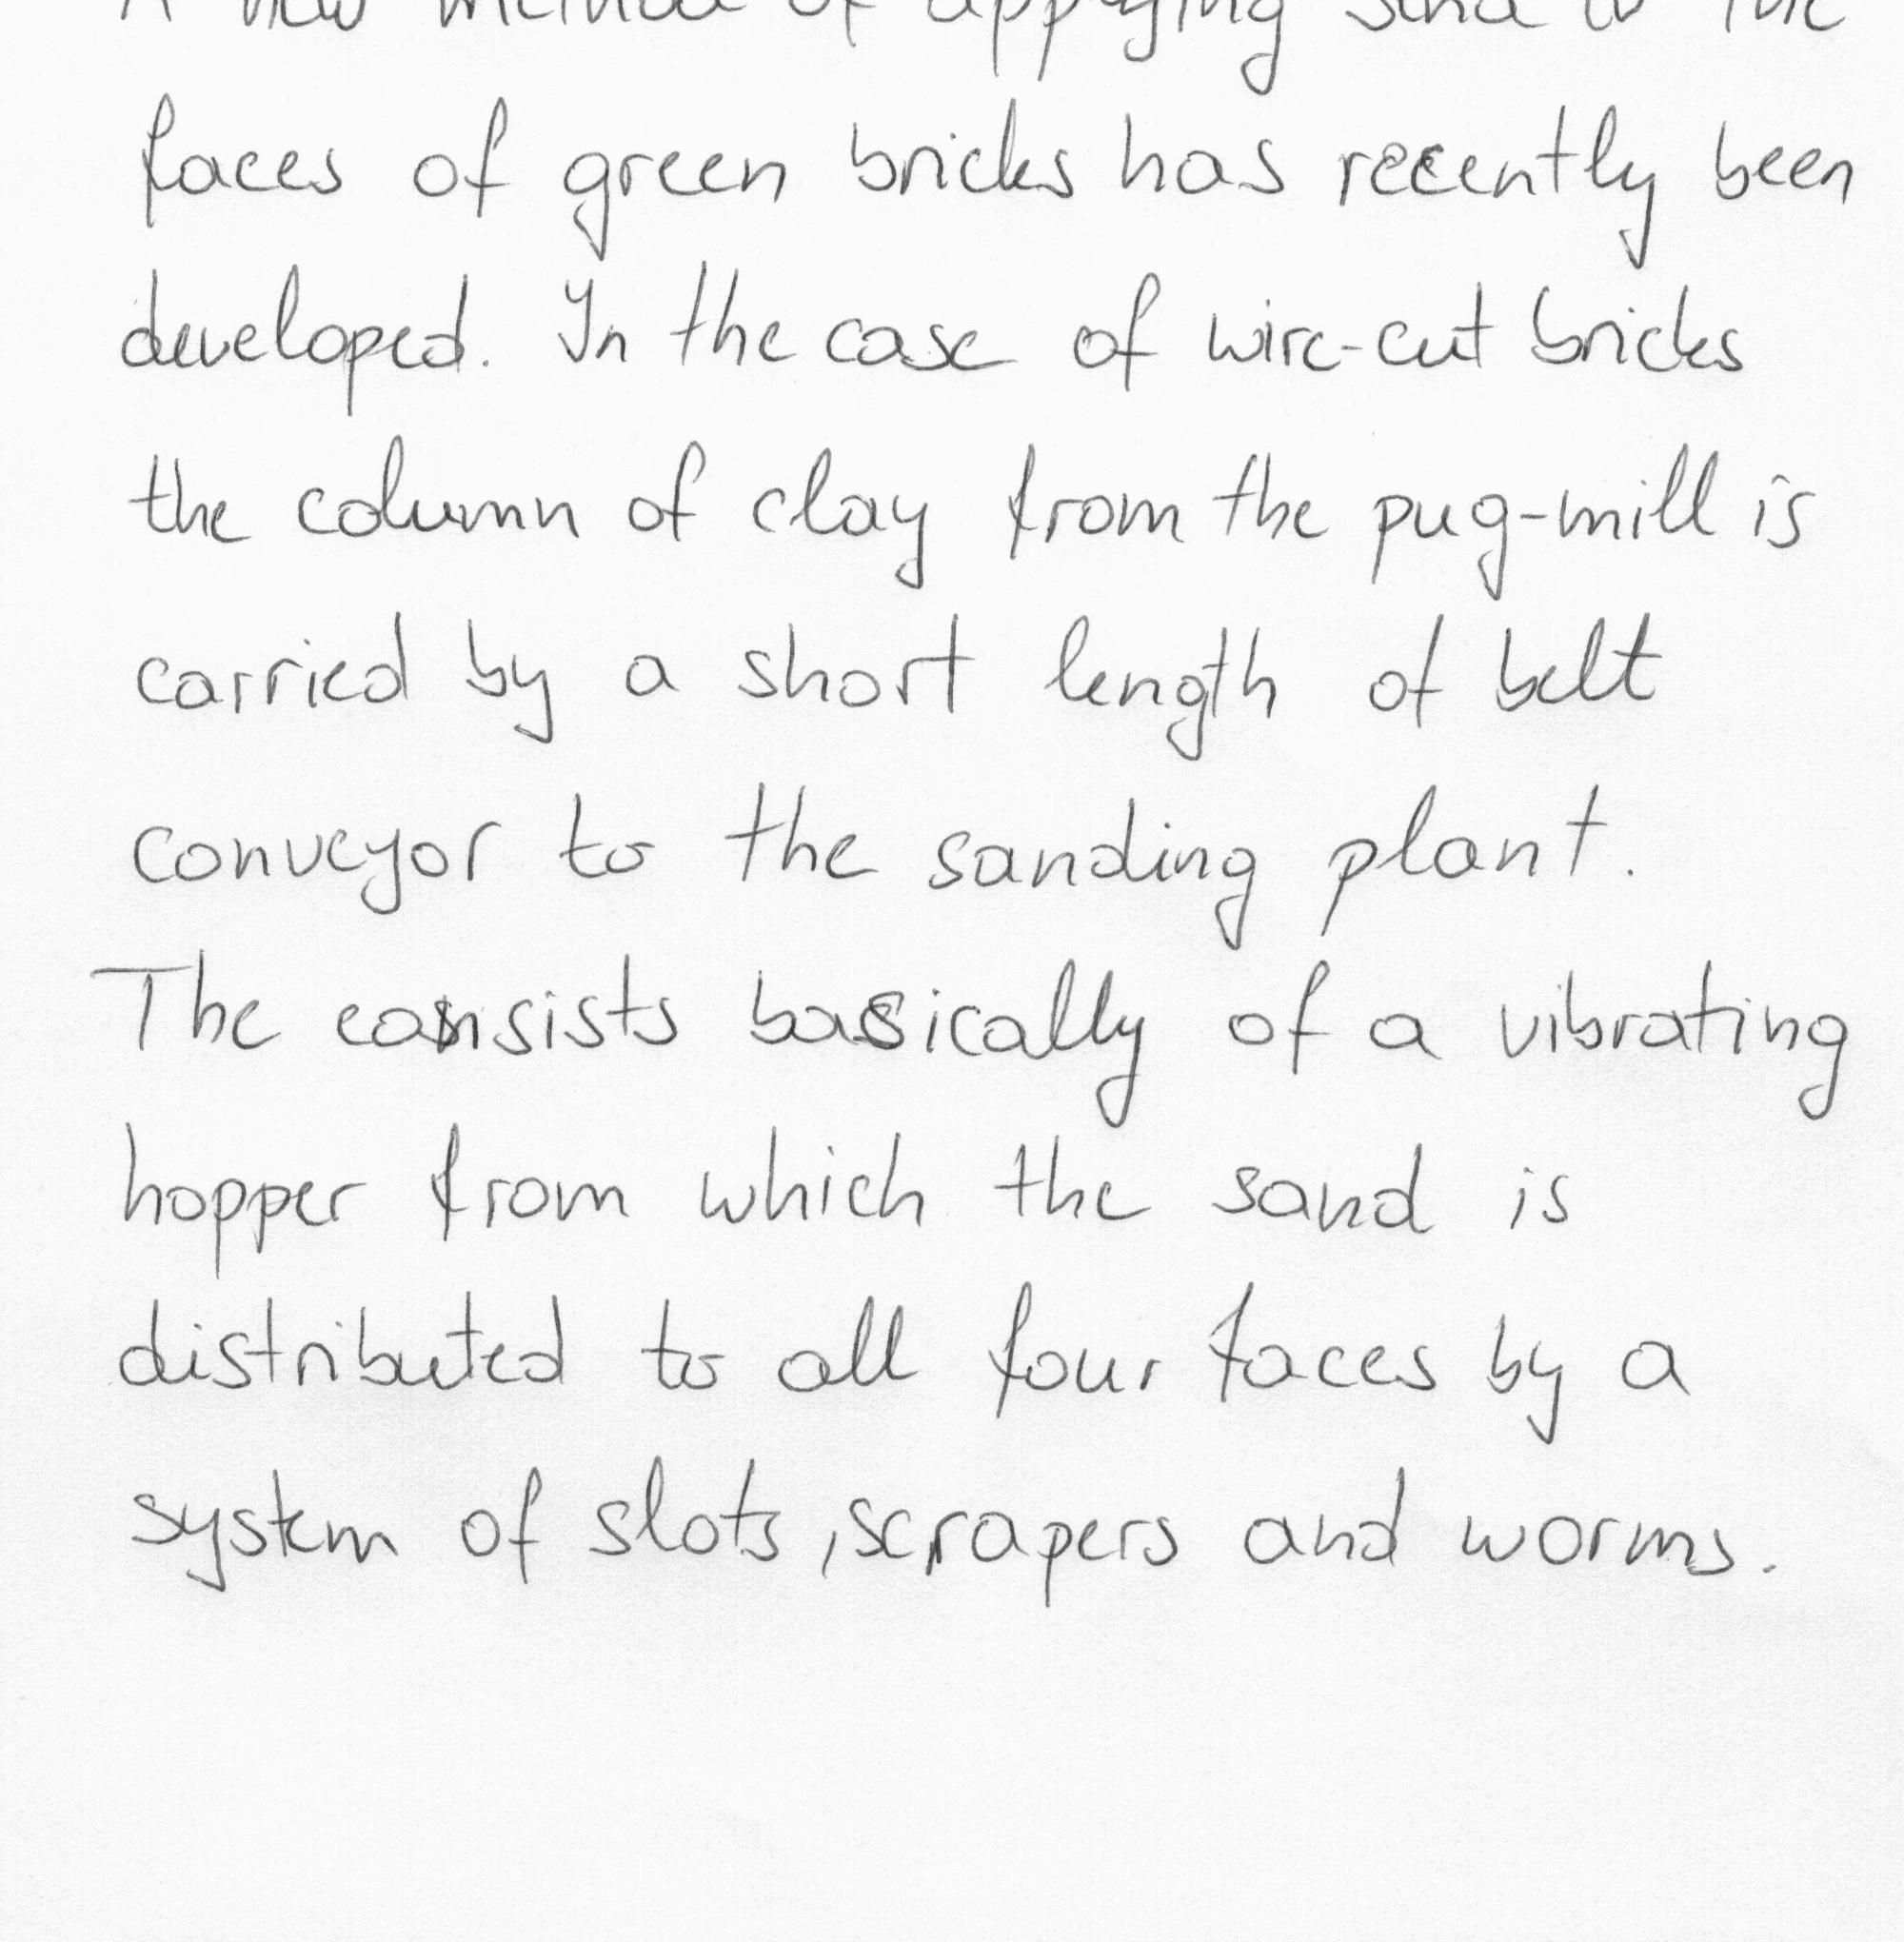 A new method of applying sand to the
faces of green bricks has recently been
developed. In the case of wire-cut bricks
the column of clay from the pug-mill is
carried by a short length of belt
conveyor to the sanding plant.
The consists basically of a vibrating
hopper from which the sand is
distributed to all four faces by a
system of slots, scrapers and worms.